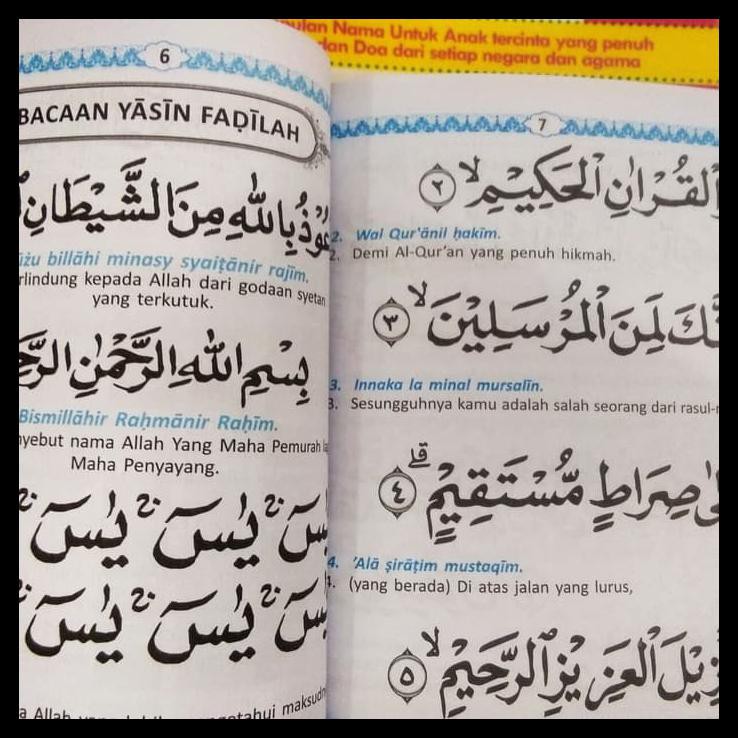 Nama Untuk Anak tercinta yang penuh
dan Doa dari setiap negara dan agama
6
BACAAN YĀSĪN FAḌĪLAH
بِاللّٰهِ مِنَ الشَّيْطَانِ
billāhi minasy syaiṭānir rajīm.
kepada Allah dari godaan syetan
yang terkutuk.
بِسْمِ اللّٰهِ الرَّحْمٰنِ
Bismillāhir Raḥmānir Raḥīm.
nama Allah Yang Maha Pemurah
Maha Penyayang.
يٰسۤ ۚ يٰسۤ ۚ
يٰسۤ ۚ يٰسۤ ۚ
Allah
7
الْقُرْاٰنِ الْحَكِيْمِۙ ٢
2. Wal Qur'ānil ḥakīm.
2. Demi Al-Qur'an yang penuh hikmah.
لَمِنَ الْمُرْسَلِيْنَۙ ٣
3. Innaka la minal mursalīn.
3. Sesungguhnya kamu adalah salah seorang dari
صِرَاطٍ مُّسْتَقِيْمٍۗ ٤
4. 'Alā ṣirāṭim mustaqīm.
4. (yang berada) Di atas jalan yang lurus,
الْعَزِيْزِ الرَّحِيْمِۙ ٥